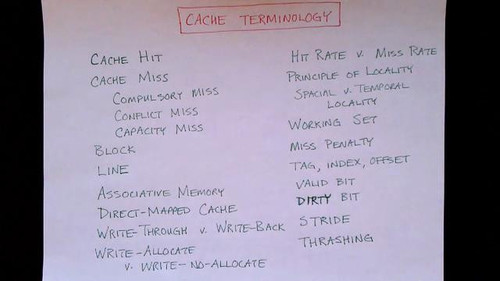 CACHE TERMINOLOGY
CACHE HIT
CACHE MISS
COMPULSORY MISS
CONFLICT MISS
CAPACITY MISS
BLOCK
LINE
ASSOCIATIVE MEMORY
DIRECT-MAPPED CACHE
WRITE-THROUGH V. WRITE-BACK
WRITE-ALLOCATE
V. WRITE-NO-ALLOCATE
HIT RATE V. MISS RATE
PRINCIPLE OF LOCALITY
SPACIAL V. TEMPORAL
LOCALITY
WORKING SET
MISS PENALTY
TAG, INDEX, OFFSET
VALID BIT
DIRTY BIT
STRIDE
THRASHING